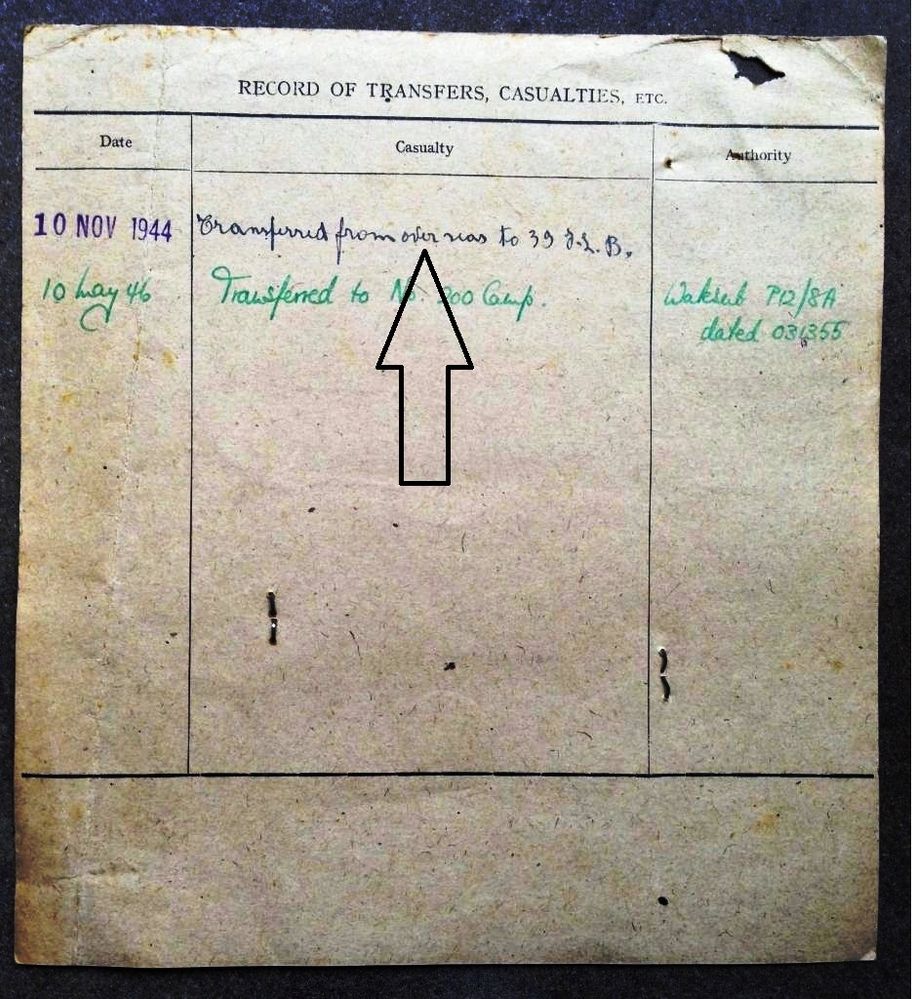 RECORD OF TRANSFERS, CASUALTIES, ETC.
Date Casualty Authority
10 NOV 1944 Transferred from over seas to 39 I.L.B.
10 May 46 Transferred to No. 200 Camp. P12/8A
dated